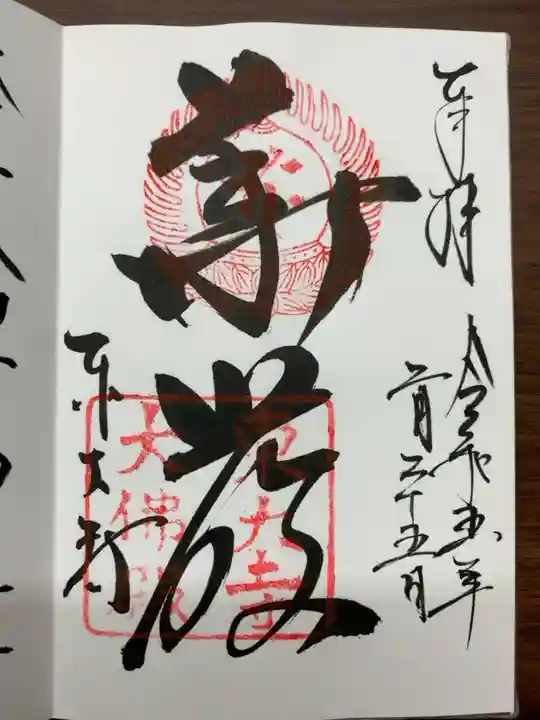 奉拝
令和五年
二月二十五日
華厳
東大寺
東大寺
大佛殿